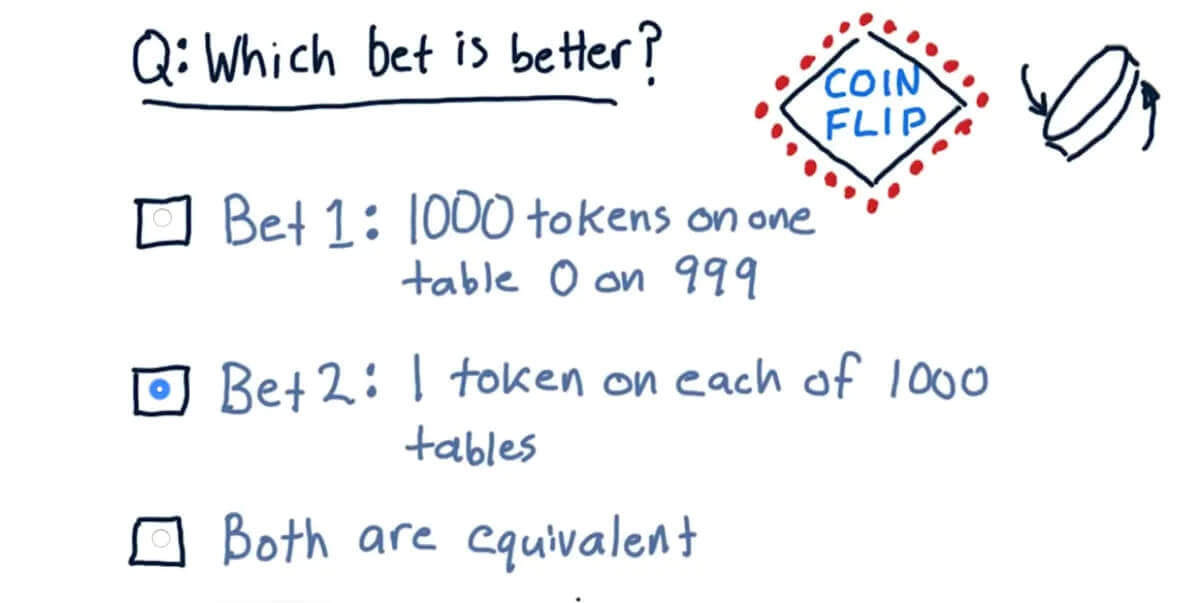 Q: Which bet is better?
COIN
FLIP
Bet 1: 1000 tokens on one
table 0 on 999
Bet 2: 1 token on each of 1000
tables
Both are equivalent